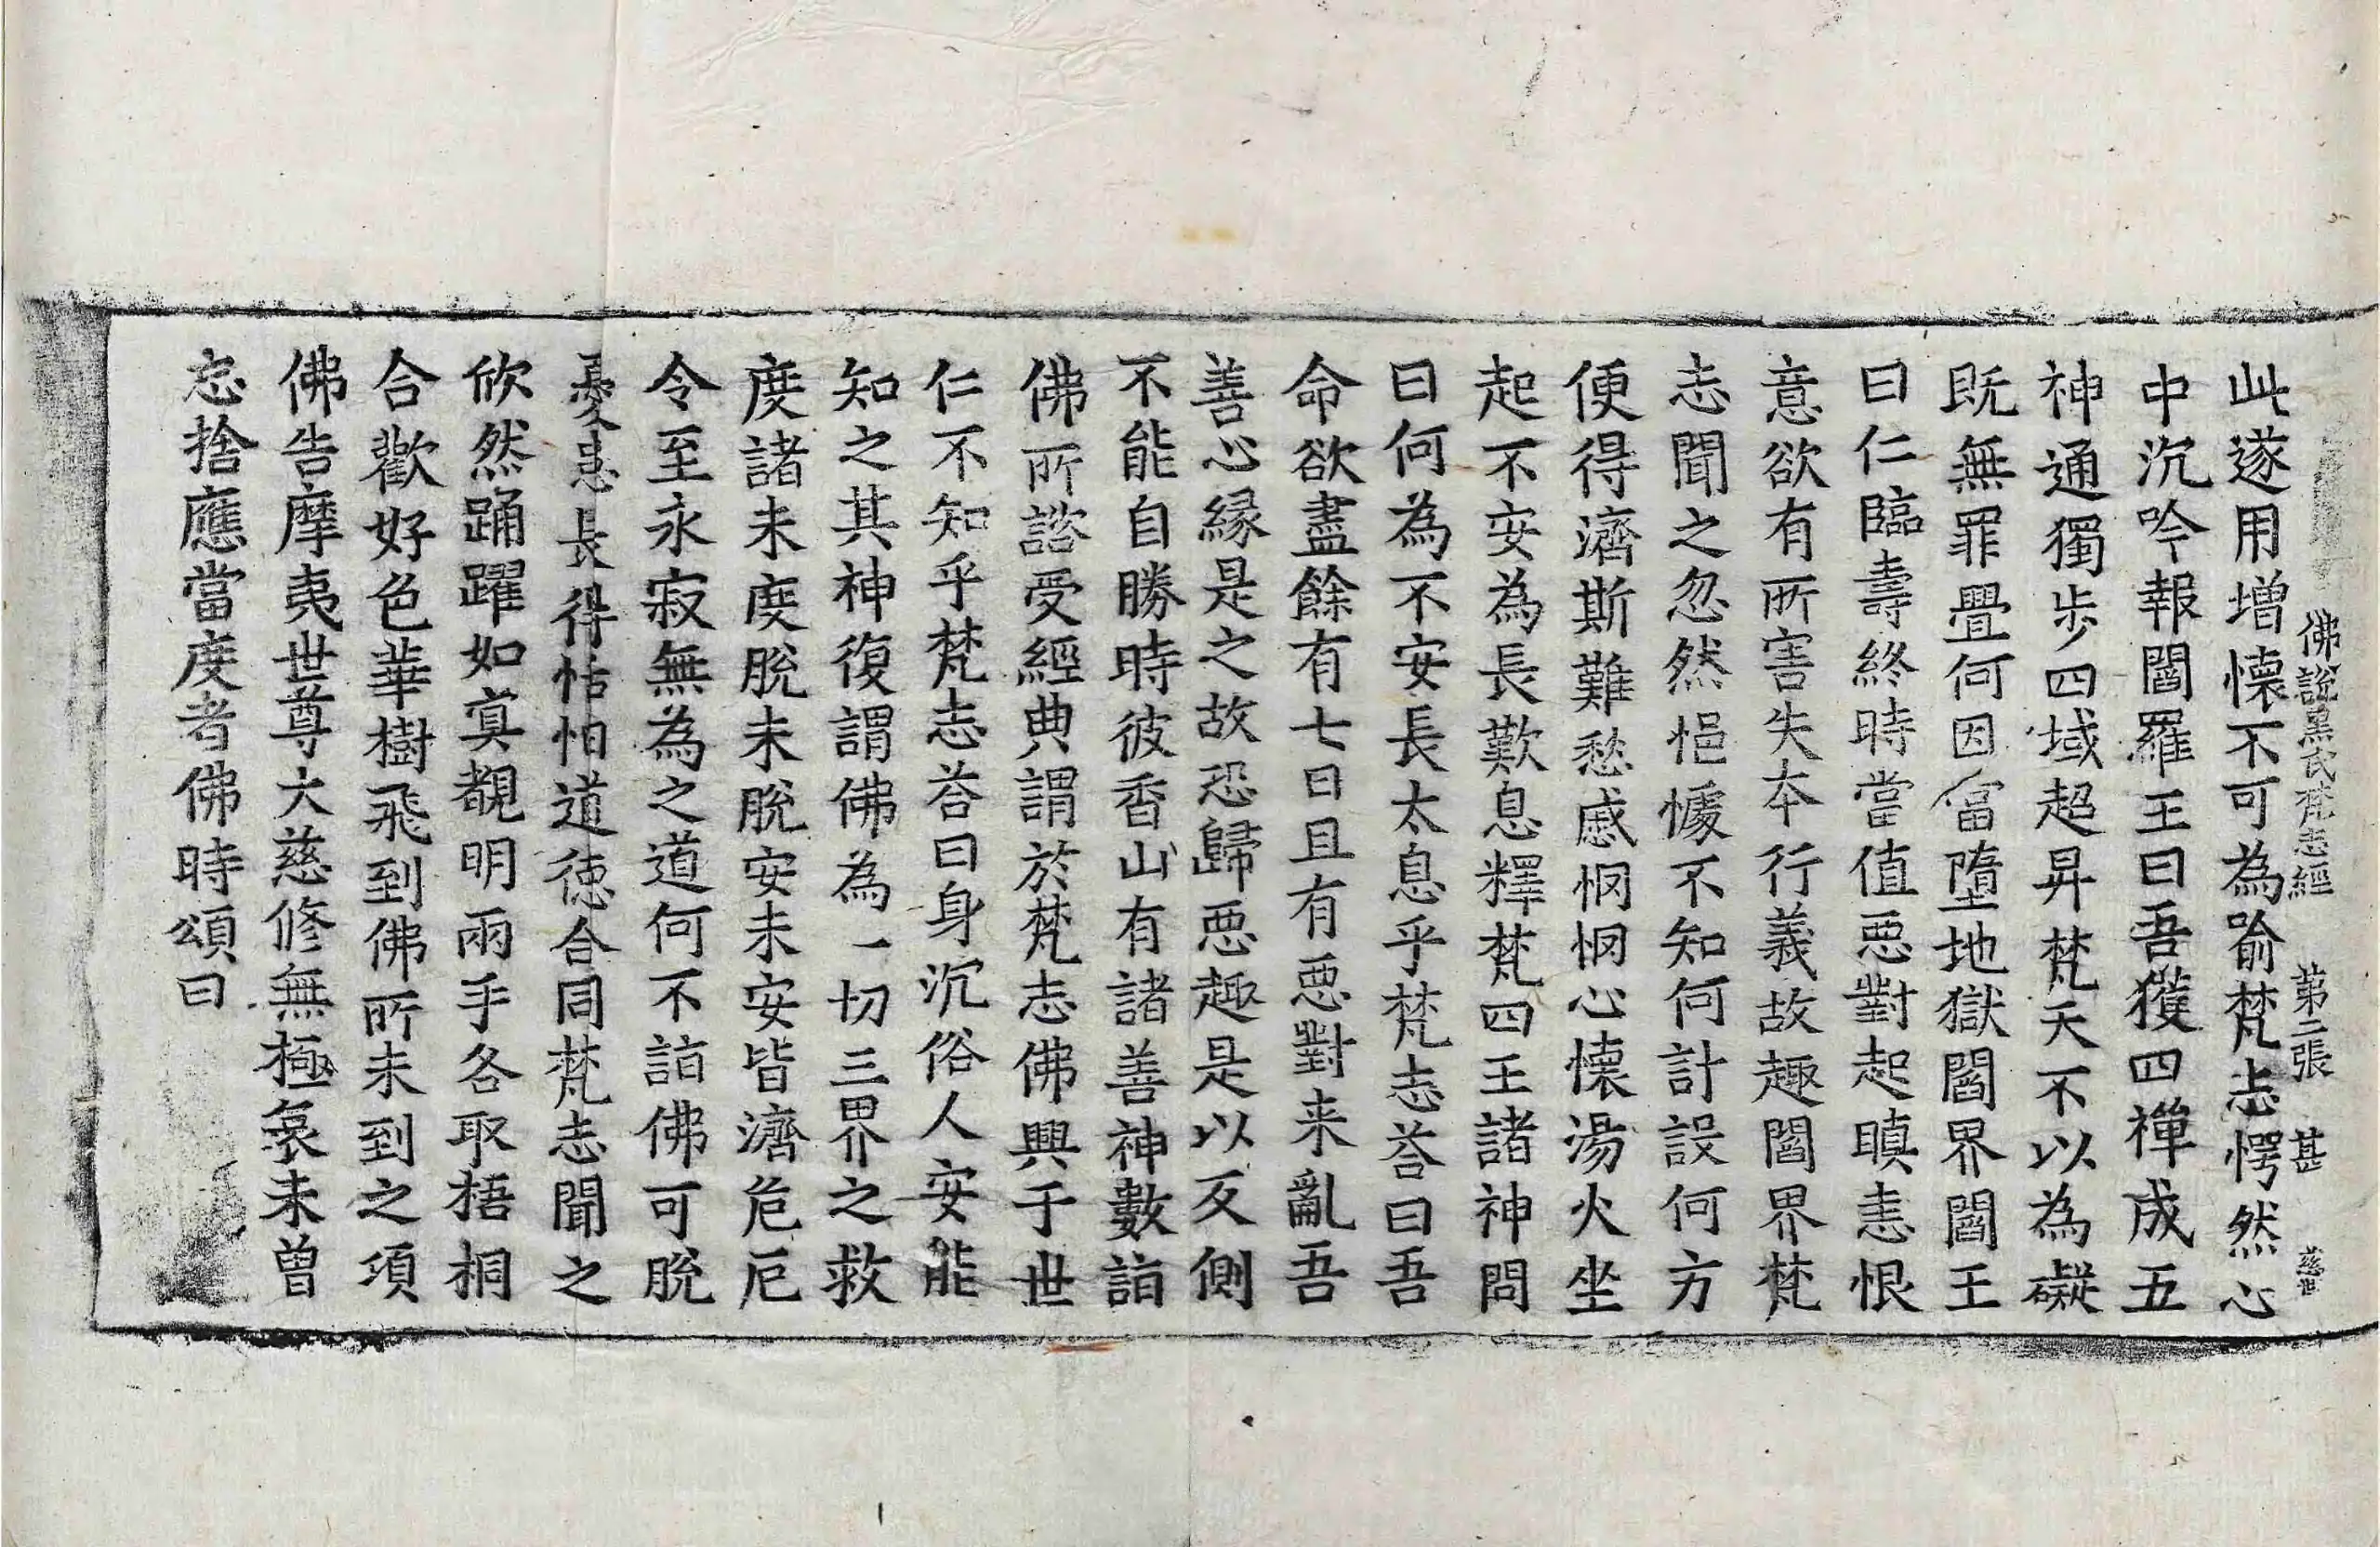 佛說黑氏梵志經 第二張 甚
此遂用增懷不可為喻梵志愕然心
中沉吟報閻羅王曰吾獲四禪成五
神通獨步四域超昇梵天不以為礙
既無罪疊何因當墮地獄閻界閻王
曰仁臨壽終時當值惡對起瞋恚恨
意欲有所害失本行義故趣閻界梵
志聞之忽然悒懅不知何計設何方
便得濟斯難愁慼惘惘心懷湯火坐
起不安為長歎息釋梵四王諸神問
曰何為不安長太息乎梵志荅曰吾
命欲盡餘有七日且有惡對来亂吾
善心緣是之故恐歸惡趣是以反側
不能自勝時彼香山有諸善神數詣
佛所諮受經典謂於梵志佛興于世
仁不知乎梵志荅曰身沉俗人安能
知之其神復謂佛為一切三界之救
度諸未度脫未脫安未安皆濟危厄
令至永寂無為之道何不詣佛可脫
憂患長得恬怕道德合同梵志聞之
欣然踊躍如冥覩明兩手各取梧桐
合歡好色華樹飛到佛所未到之須
佛告摩夷世尊大慈修無極哀未曾
忘捨應當度者佛時頌曰